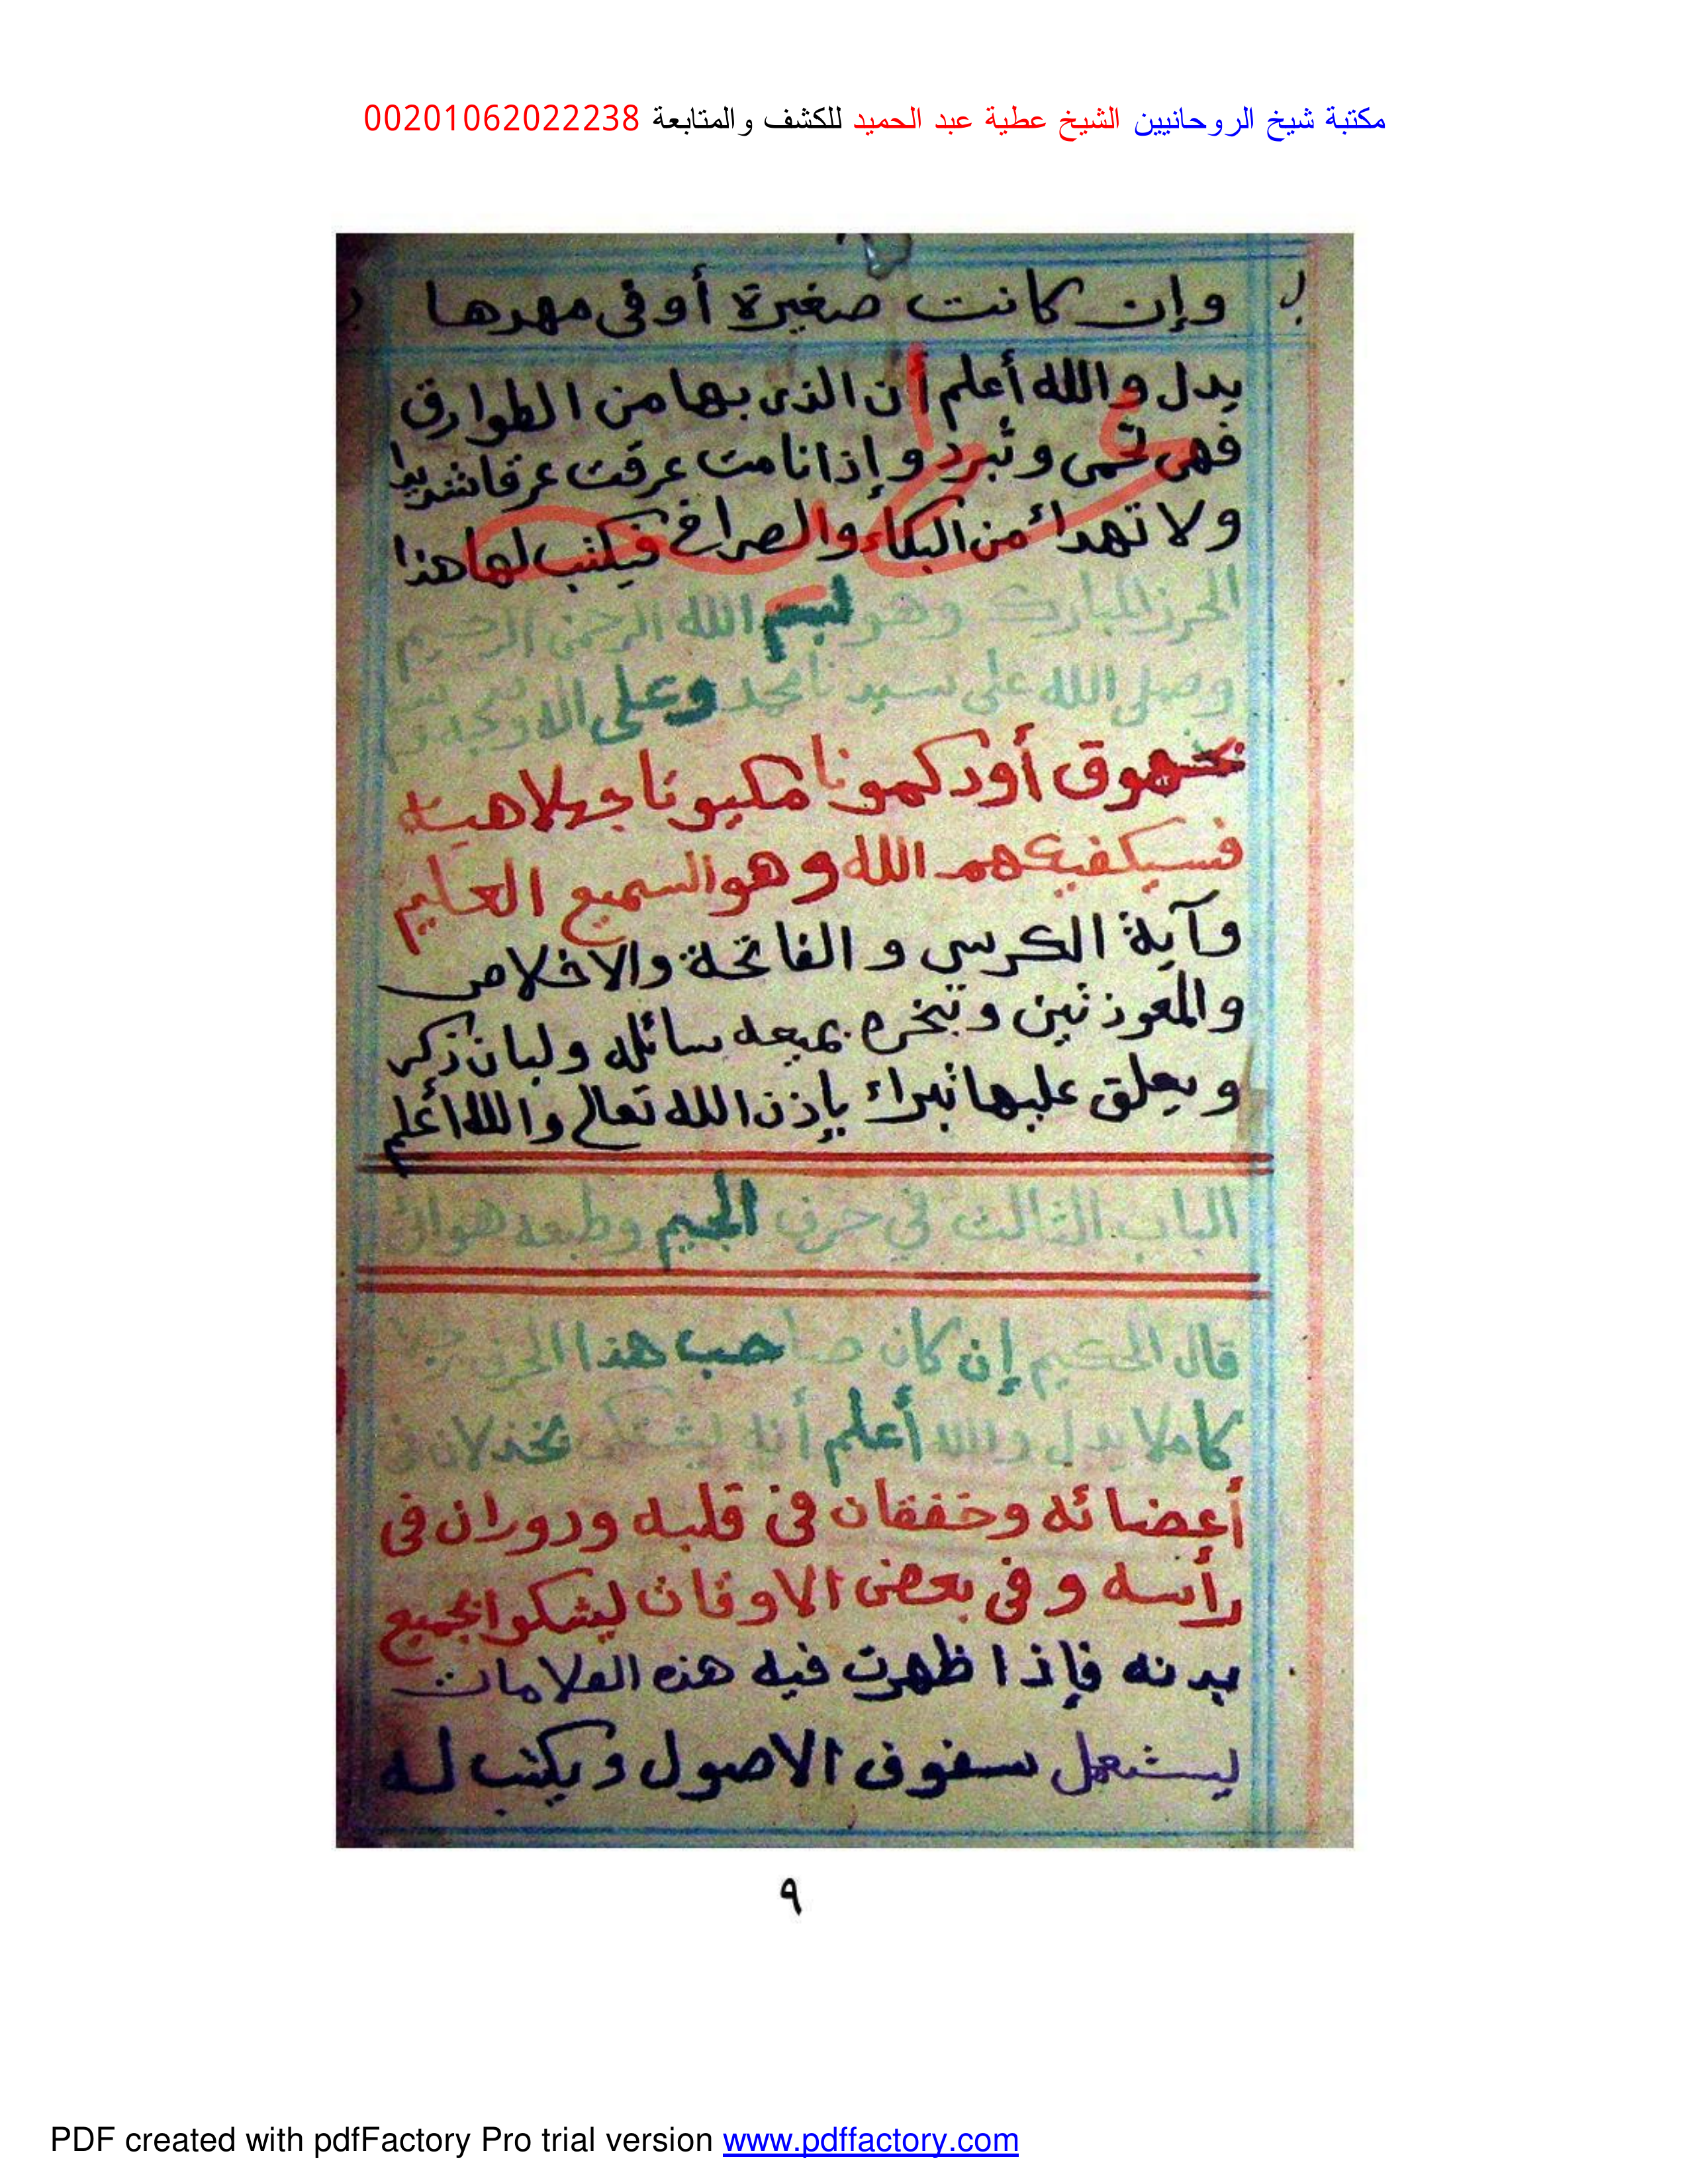 مكتبة شيخ الروحانيين الشيخ عطية عبد الحميد للكشف والمتابعة 00201062022238
وإن كانت صغيرة أو فى مهدها
يدل والله أعلم أن الذى بها من الطوارق
فهى تحمى وتبرد وإذا نامت عرقت عرقا شديدا
ولا تهدائ من البكاء والصراخ فيكتب لها هذا
الحرز المبارك وهو لبسم الله الرحمن الرحيم
وصلى الله على سيدنا محمد وعلى اله
أودكمونا مكيونا
فسيكفيكهم الله وهو السميع العليم
وآية الكرسي و الفاتحة والاخلاص
والمعوذتين وتبخره بميعه سائله ولبان ذكر
ويعلق عليها تبراء بإذن الله تعالى والله أعلم
الباب الثالث في حرف الجيم وطبعه هوائ
قال الحكيم إن كان صاحب هذا الحرف
كاملا يدل والله أعلم أنه يشتكى بخذلان فى
أعضائه وخفقان فى قلبه ودوران فى
رأسه و فى بعض الاوقات ليشكوا بجميع
بدنه فإذا ظهرت فيه هذه العلامات
ليستعمل سفوف الاصول ويكتب له
٩
PDF created with pdfFactory Pro trial version www.pdffactory.com